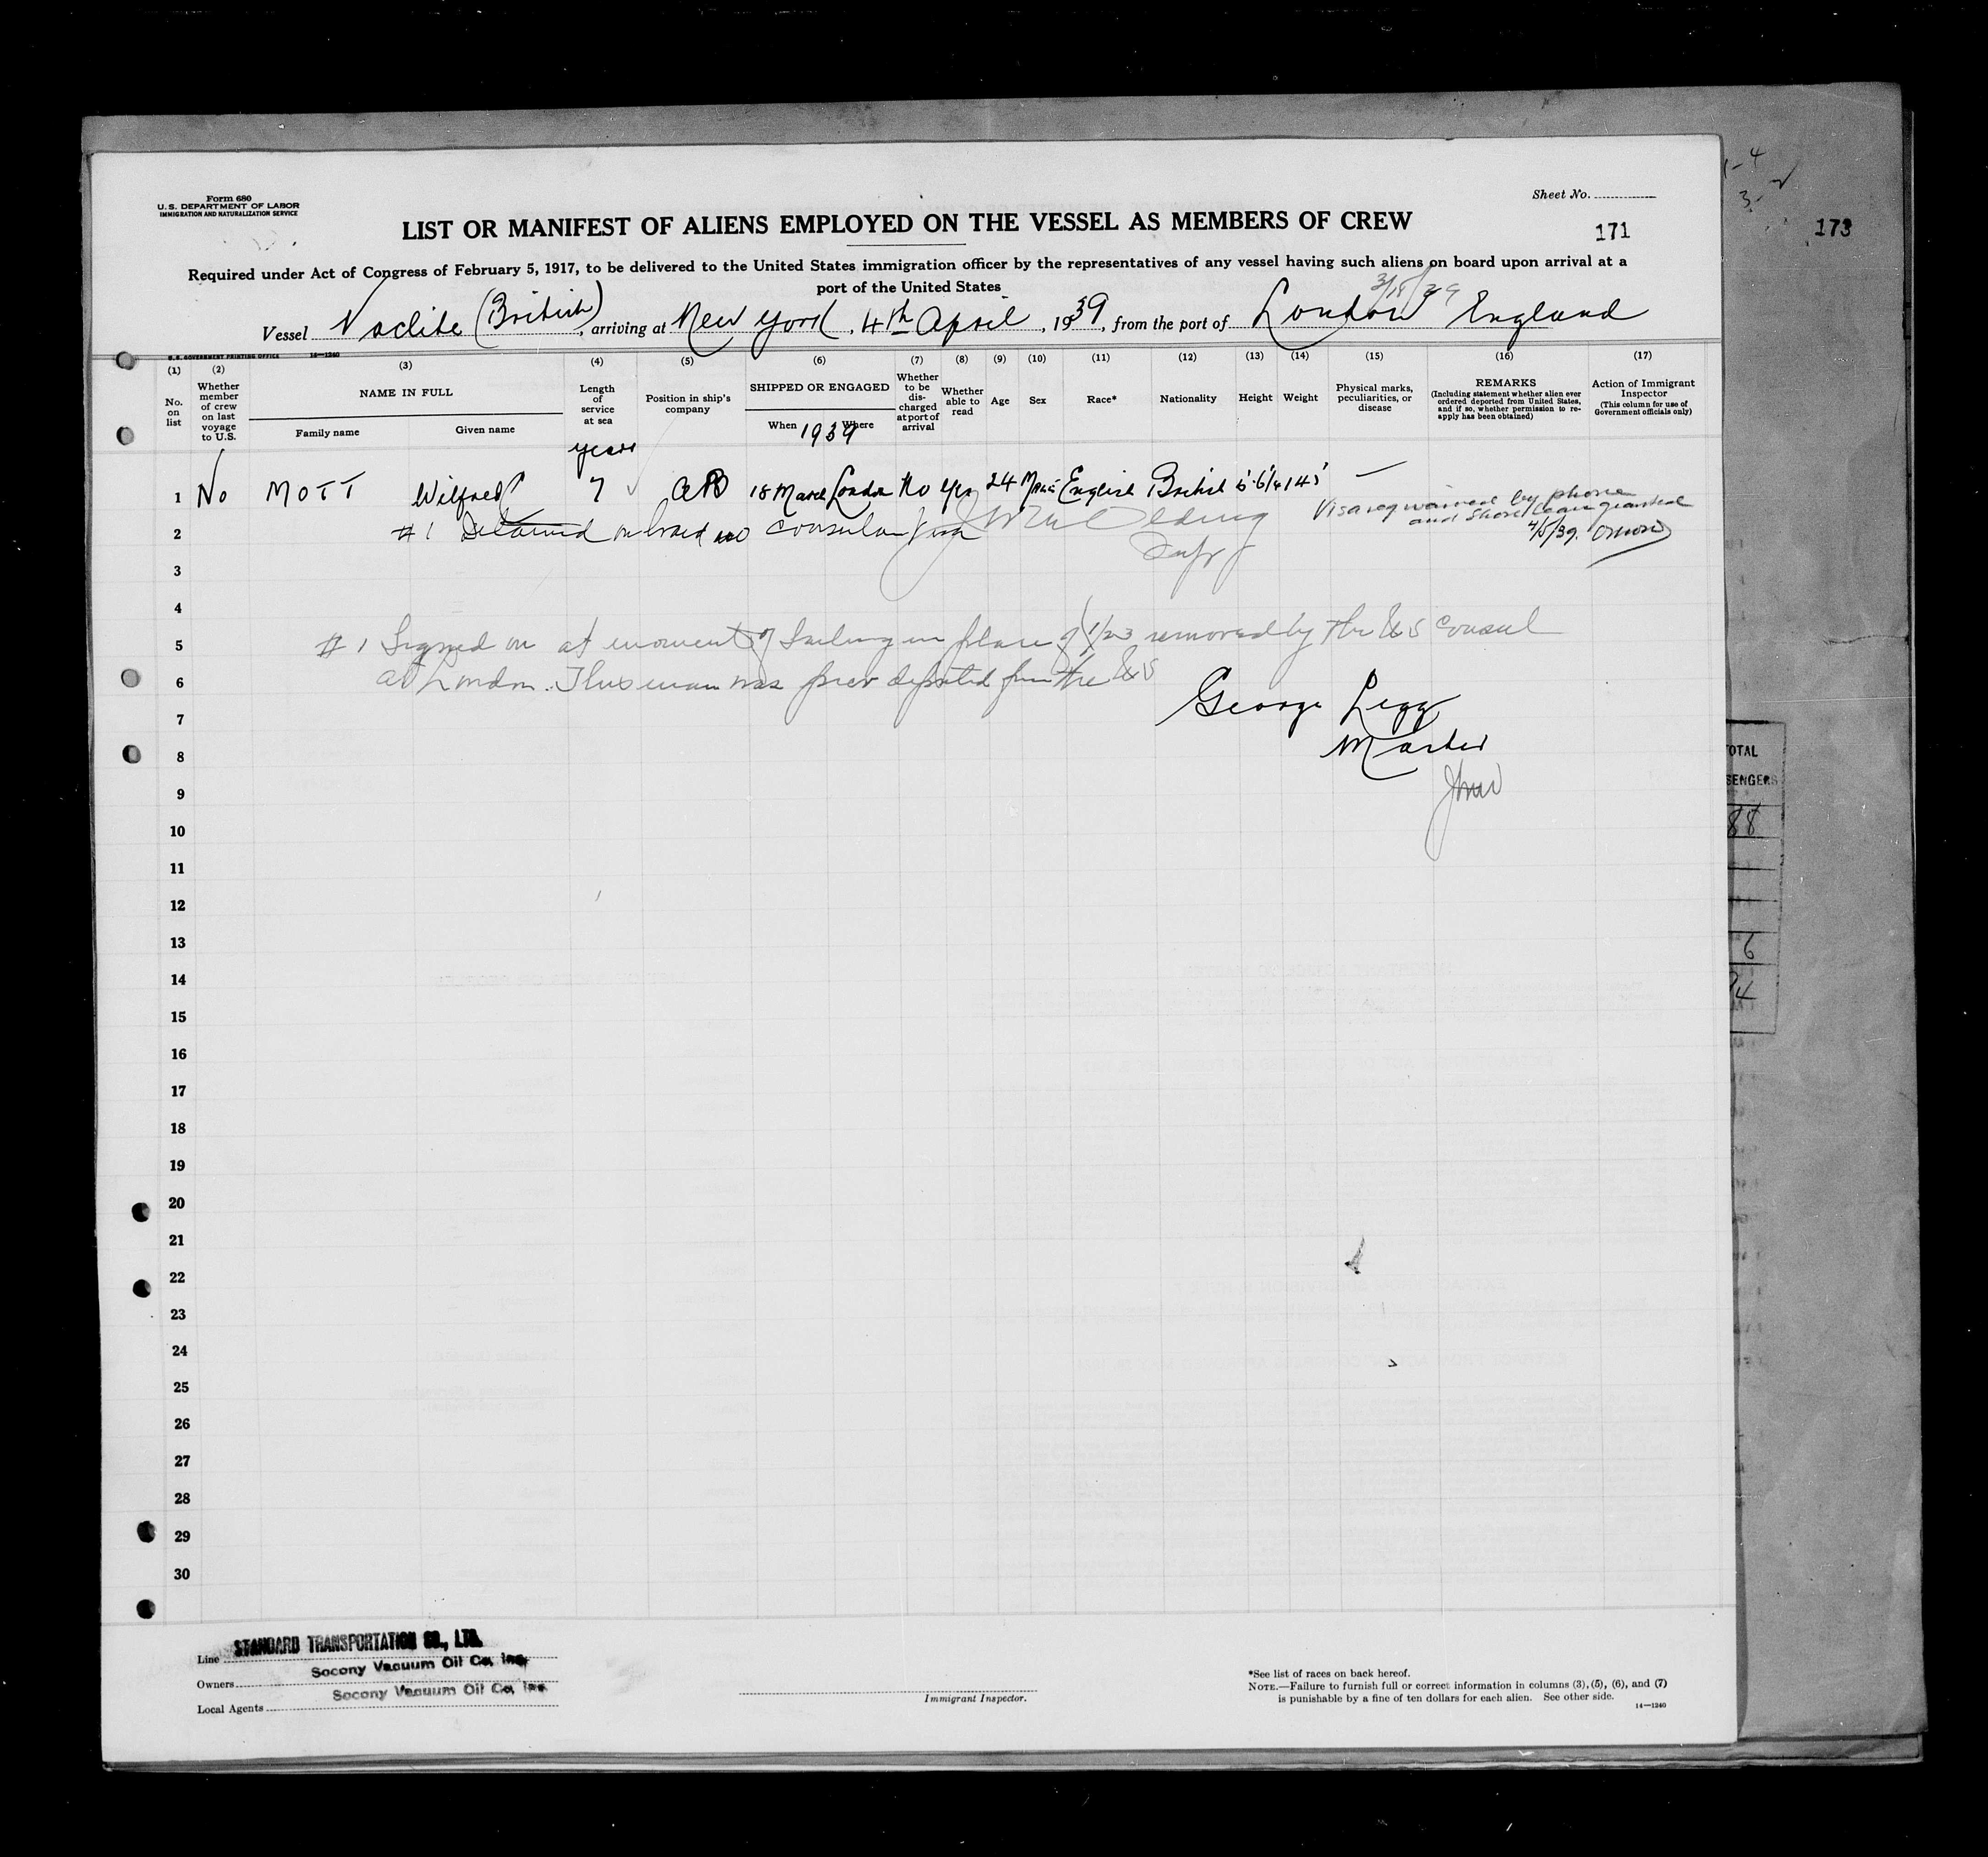 Form 680
U. S. DEPARTMENT OF LABOR
IMMIGRATION AND NATURALIZATION SERVICE
Sheet No.
LIST OR MANIFEST OF ALIENS EMPLOYED ON THE VESSEL AS MEMBERS OF CREW
171
173
Required under Act of Congress of February 5, 1917, to be delivered to the United States immigration officer by the representatives of any vessel having such aliens on board upon arrival at a
port of the United States
3/18/39
Vessel (British), arriving at New York, 4th April, 1939, from the port of London England
U. S. GOVERNMENT PRINTING OFFICE 14—1240
(1) (2) (3) (4) (5) (6) (7) (8) (9) (10) (11) (12) (13) (14) (15) (16) (17)
No. on list
Whether member of crew on last voyage to U.S.
NAME IN FULL
Family name Given name
Length of service at sea
years
Position in ship's company
SHIPPED OR ENGAGED
When Where
1939
Whether to be discharged at port of arrival
Whether able to read
Age
Sex
Race*
Nationality
Height
Weight
Physical marks, peculiarities, or disease
REMARKS
(Including statement whether alien ever ordered deported from United States, and if so, whether permission to re-apply has been obtained)
Action of Immigrant Inspector
(This column for use of Government officials only)
1 No MOTT Wilfred 7 AB 18 March London No Yes 24 Male English British 5'-6 1/4 145 —
Visa req waived by phone
and Shore Leave granted
4/5/39.
2 #1 Detained on board no consular visa
3
4
5 #1 Signed on at moment of sailing in place of 1/23 removed by the US Consul
6 at London. This man was prev deported from the US
7 George Legg
8 Master
9
10
11
12
13
14
15
16
17
18
19
20
21
22
23
24
25
26
27
28
29
30
TOTAL
SENGERS
88
6
94
Line STANDARD TRANSPORTATION CO., LTD.
Owners Socony Vacuum Oil Co., Inc.
Local Agents Socony Vacuum Oil Co., Inc.
Immigrant Inspector.
*See list of races on back hereof.
NOTE.—Failure to furnish full or correct information in columns (3), (5), (6), and (7)
is punishable by a fine of ten dollars for each alien. See other side.
14—1240